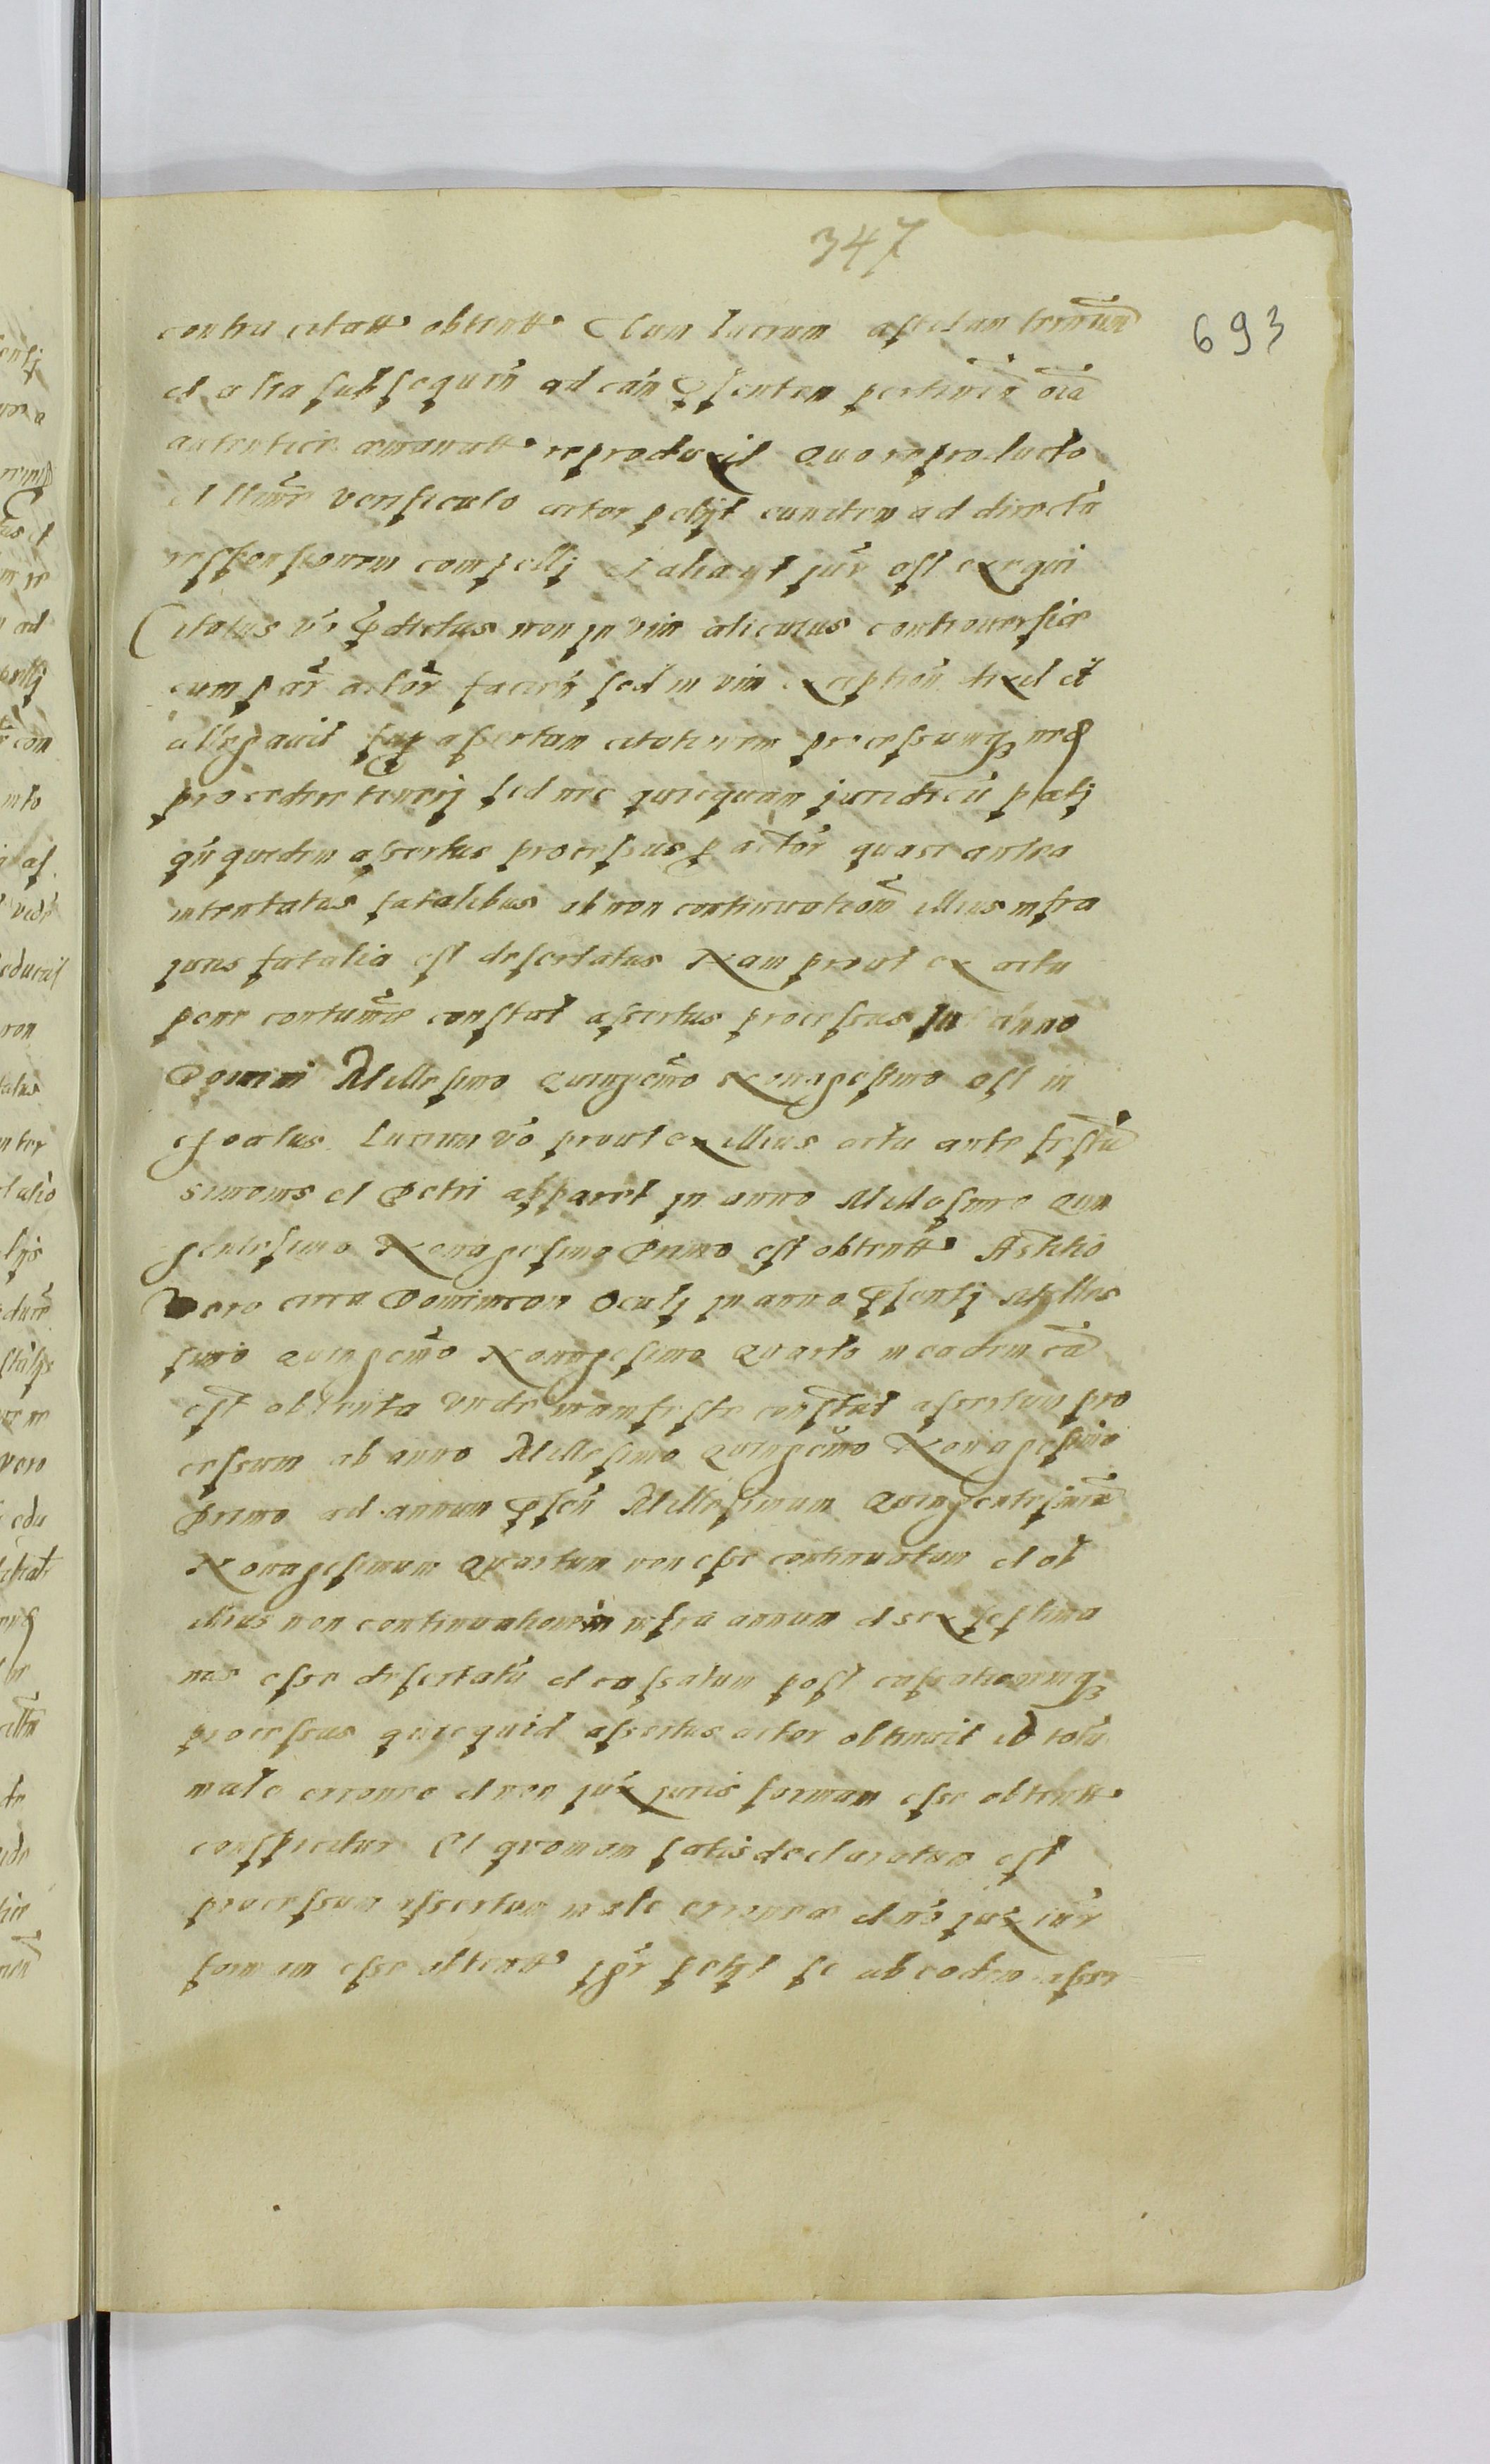 347
693
contra citatt obtentt Cum lucrum
et alia subsequen ad eam presentem pertinen oia
autentice emanatt reproduxit Quo reproducto
et verificato actor petijt eundem ad directa
responsionem compelli et alia ut jur est exequi
Citatus vo predictus non in vim alicuius controuersiæ
cum par actor facien sed in vim exception dixit et
allegauit assertam citationem processumq neq
procedere teneri sed nec quicquam juridicu pati
qn quidem assertus processus per actor quasi antea
intentatus fatalibus ob non continuation illius infra
juris fatalia est desertatus Nam prout ex actu
pene contumac constat assertus processus in anno
Domini Millesimo Quingemo Nonagesimo est in
choatus Lucrum vo prout ex illius actu ante festu
Simonis et Petri apparet in anno Millesimo Quin
gentesimo Nonagesimo Primo est obtentt
vero circa Dominicam Oculi in anno presenti Milles
simo Quingemo Nonagesimo Quarto in eadem ca
est obtenta Unde manifeste constat assertum pro
cessum ab anno Millesimo Quingemo Nonagesimo
Primo ad annum presen Millesimum Quingentesimu
Nonagesimum Quartum non esse continuatum et ob
illius non continuationem infra annum et sex septima
nas esse desertatu et cassatum post cassationemq
processus quicquid assertus actor obtinuit id totu
male erronee et non jux juris formam esse obtentt
conspicitur Et quoniam satis declaratum est
processum assertum male erronee et no jux jur
formam esse obtentt igr petijt se ab eodem asser